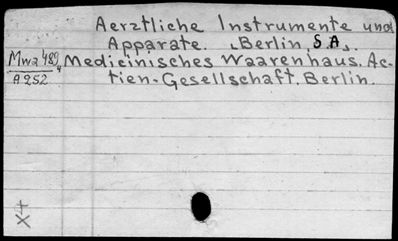 Aerztliche Instrumente und
Apparate. Berlin, S.A.
Mwa 489, Medicinisches Waarenhaus. Ac-
A 252 tien-Gesellschaft. Berlin.